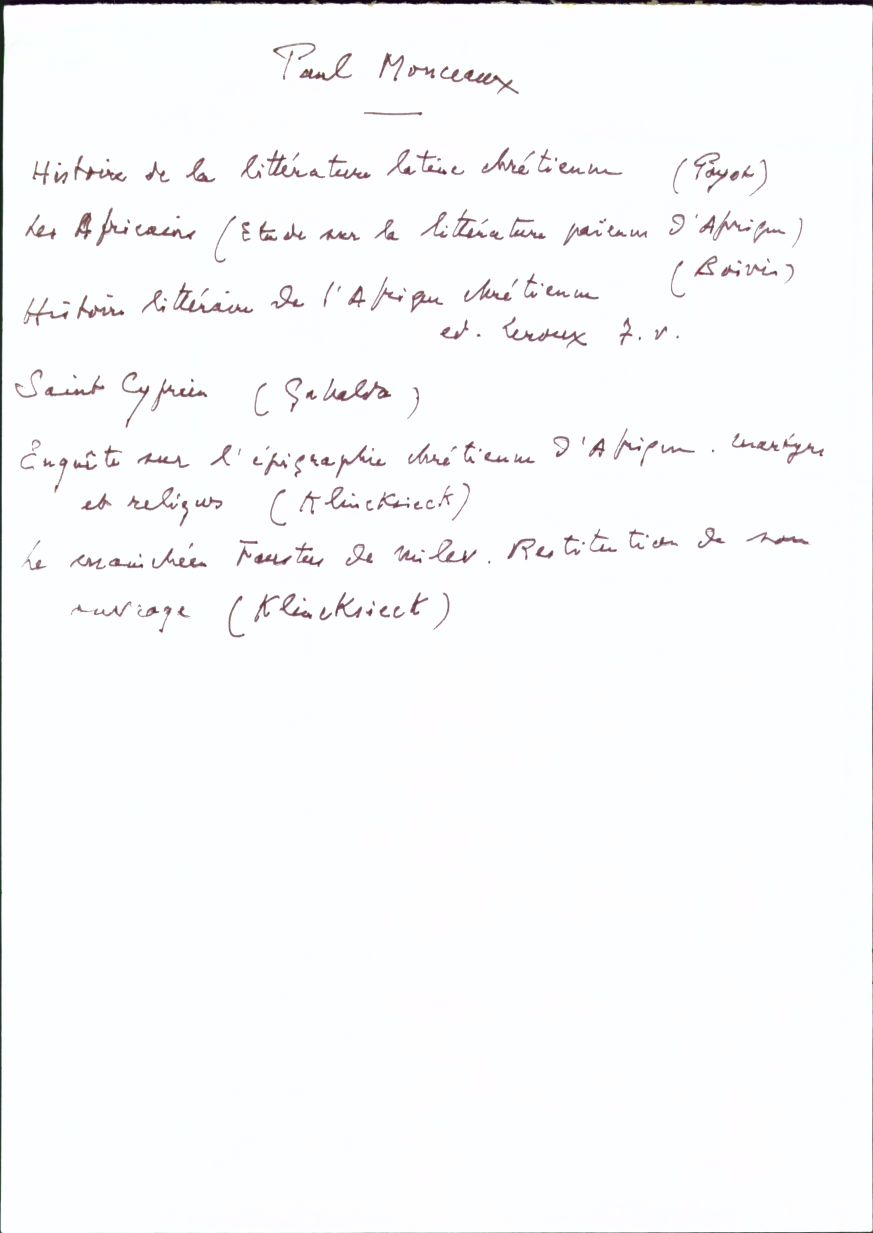 Paul Monceaux
Histoire de la littérature latine chrétienne (Payot)
Les Africains (Etude sur la littérature païenne d'Afrique)
(Boivin)
Histoire littéraire de l'Afrique chrétienne
ed. Leroux 7. v.
Saint Cyprien (Gabalda)
Enquête sur l'épigraphie chrétienne d'Afrique. martyrs
et reliques (Klincksieck)
Le manichéen Faustus de Milev. Restitution de son
ouvrage (Klincksieck)